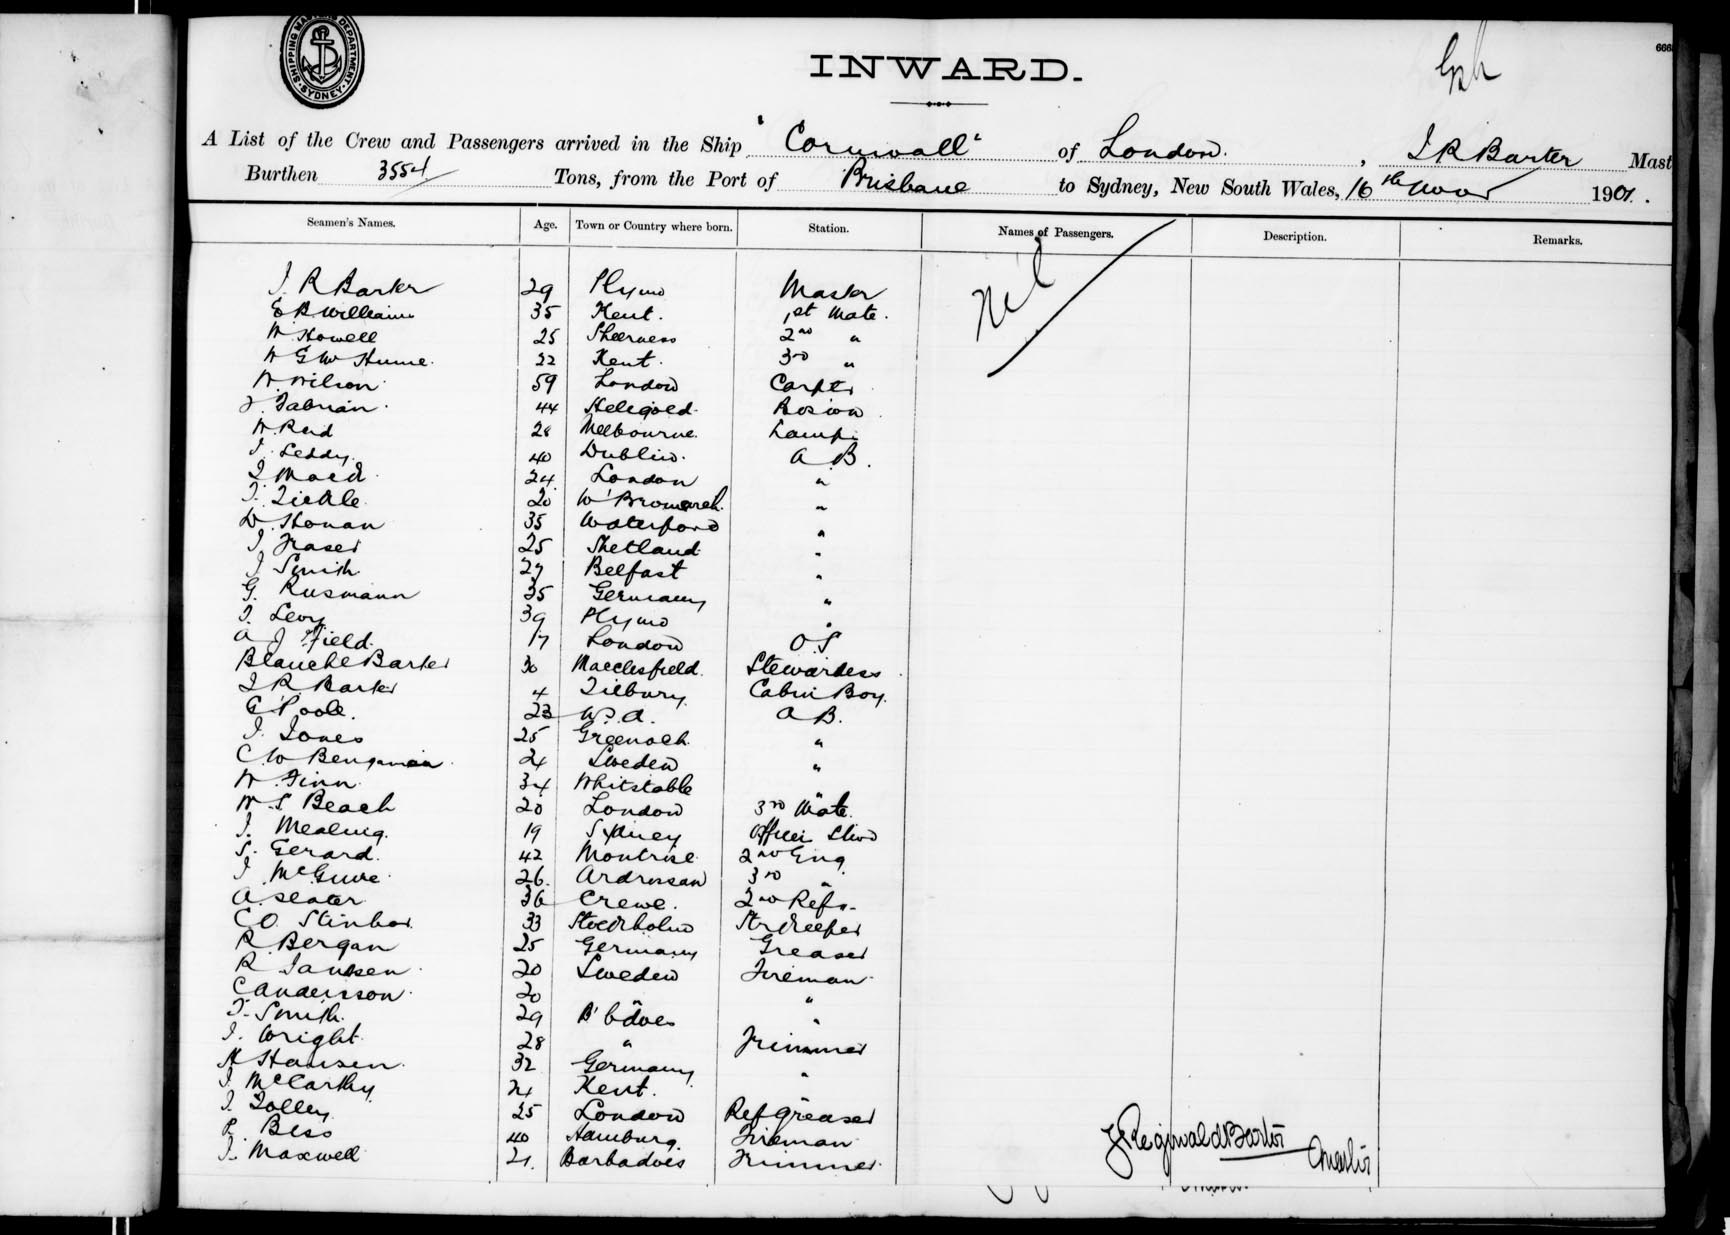 SHIPPING MASTERS DEPARTMENT. SYDNEY.
666
INWARD.
A List of the Crew and Passengers arrived in the Ship "Cornwall" of London, J R Barter Mast
Burthen 3554 Tons, from the Port of Brisbane to Sydney, New South Wales, 16th Novr 1901.
Seamen's Names. Age. Town or Country where born. Station. Names of Passengers. Description. Remarks.
Nil
J. R Barter 29 Plymo Master
E B Williams 35 Kent. 1st Mate.
W Howell 25 Sheerness 2nd "
W G W Hume. 22 Kent. 3rd "
W. Wilson 59 London Carptr
J. Fabrian. 44 Heligold. Bosion
W Reid 28 Melbourne. Lamps
J. Leddy. 40 Dublin. A.B.
24. London "
J. Tickle. 20 W' Bromwich. "
D. Honan 35 Waterford "
J. Fraser 25 Shetland "
J Smith 27 Belfast "
G. Rusmann 35 Germany "
J. Levy 39 Plymo "
A J Field. 17 London O.S
Blanche Barter 30 Macclesfield. Stewardess
J R Barter 4 Tilbury. Cabin Boy.
E Poole. 23 W.A. A B.
J. Jones 25 Greenock. "
C W Bengamin 24 Sweden "
W. Finn 34 Whitstable "
W. S Beach 20 London 3rd Mate.
J. Mealing. 19 Sydney Officer Stwd
S. Gerard. 42 Montrose 2nd Eng
J. McGuire 26. Ardrossan 3rd "
A. Slater 36 Crewe. 2nd Refr.
C O. 33 Stockholm Strkeeper
R. Bergan 25 Germany Greaser
R Jansen 20 Sweden Fireman
C Anderson 20 " "
T. Smith. 29 B'badoes "
J. Wright 28 " Trimmer
H Hansen. 32 Germany "
J. McCarthy 24 Kent.
J. Tolley. 25 London Ref Greaser
P. Bess 40 Hamburg. Fireman
J. Maxwell 21. Barbadoes Trimmer
J Reginald Barter Master